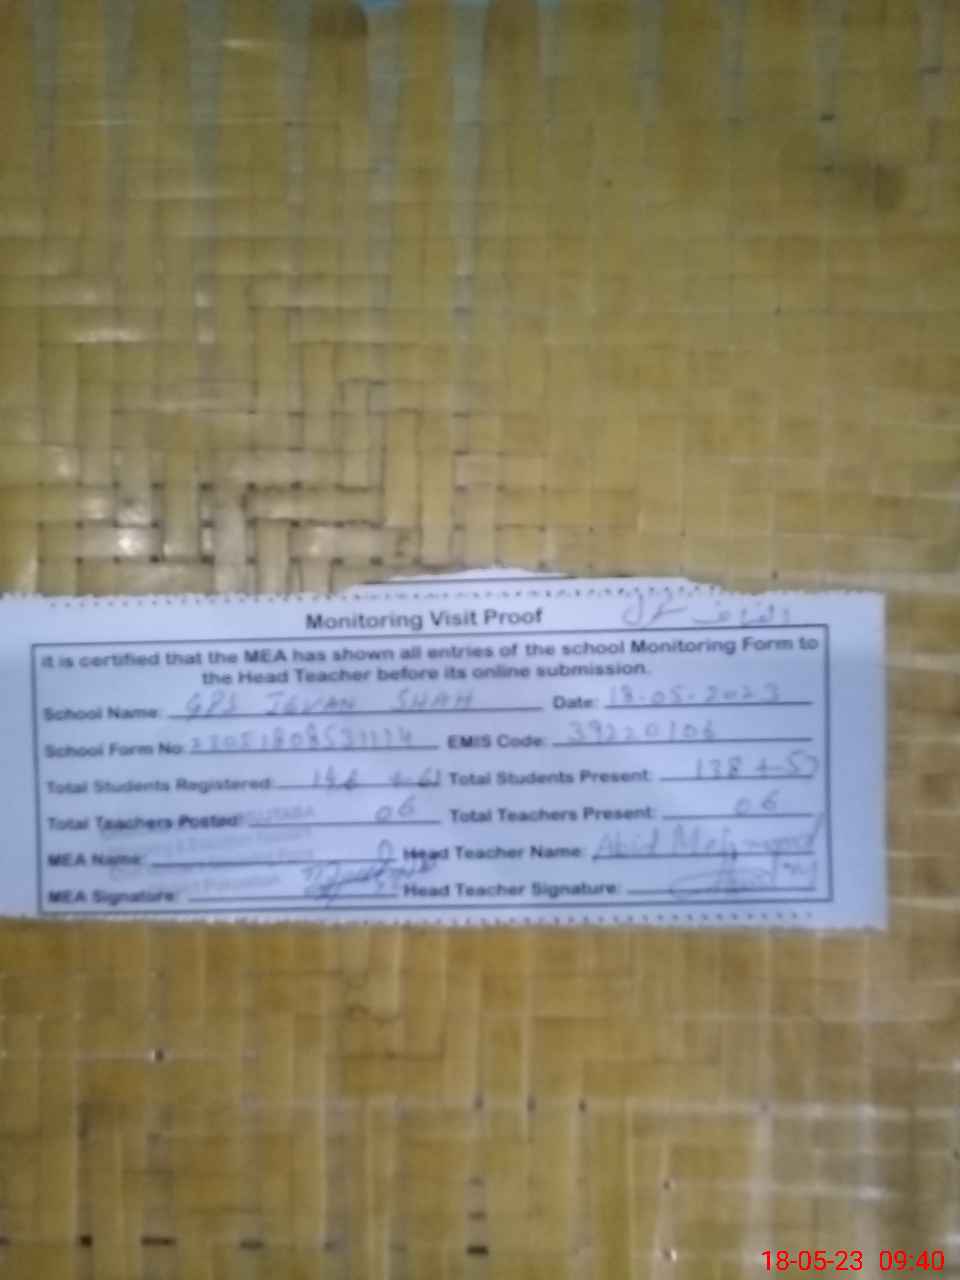 Monitoring Visit Proof
it is certified that the MEA has shown all entries of the school Monitoring Form to
the Head Teacher before its online submission.
School Name: GPS SHAH Date: 18-05-2023
School Form No: EMIS Code: 39220106
Total Students Registered: Total Students Present: 138 + 53
Total Teachers Posted: 06 Total Teachers Present: 06
MEA Name: Head Teacher Name: Abid Mehmood
MEA Signature: Head Teacher Signature:
18-05-23 09:40